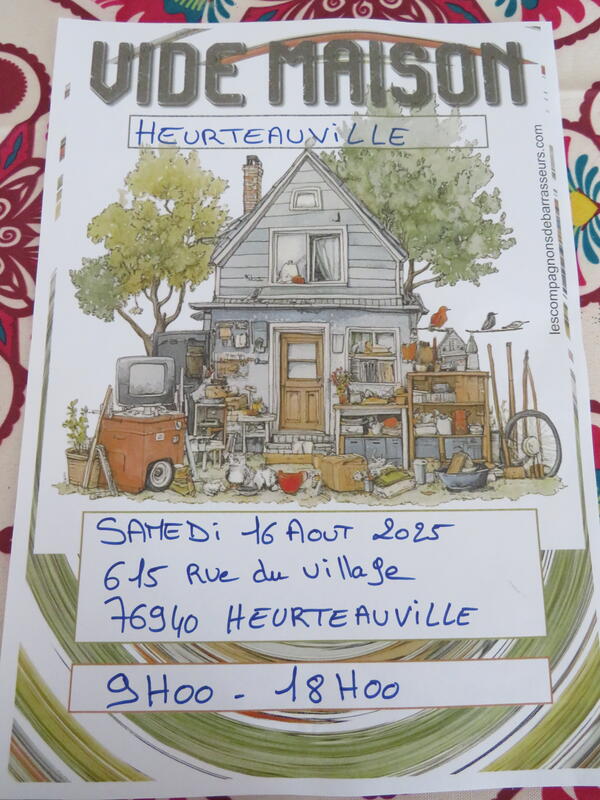 VIDE MAISON
HEURTEAUVILLE
lescompagnonsdebarrasseurs.com
SAMEDI 16 AOUT 2025
615 Rue du village
76940 HEURTEAUVILLE
9H00 - 18H00